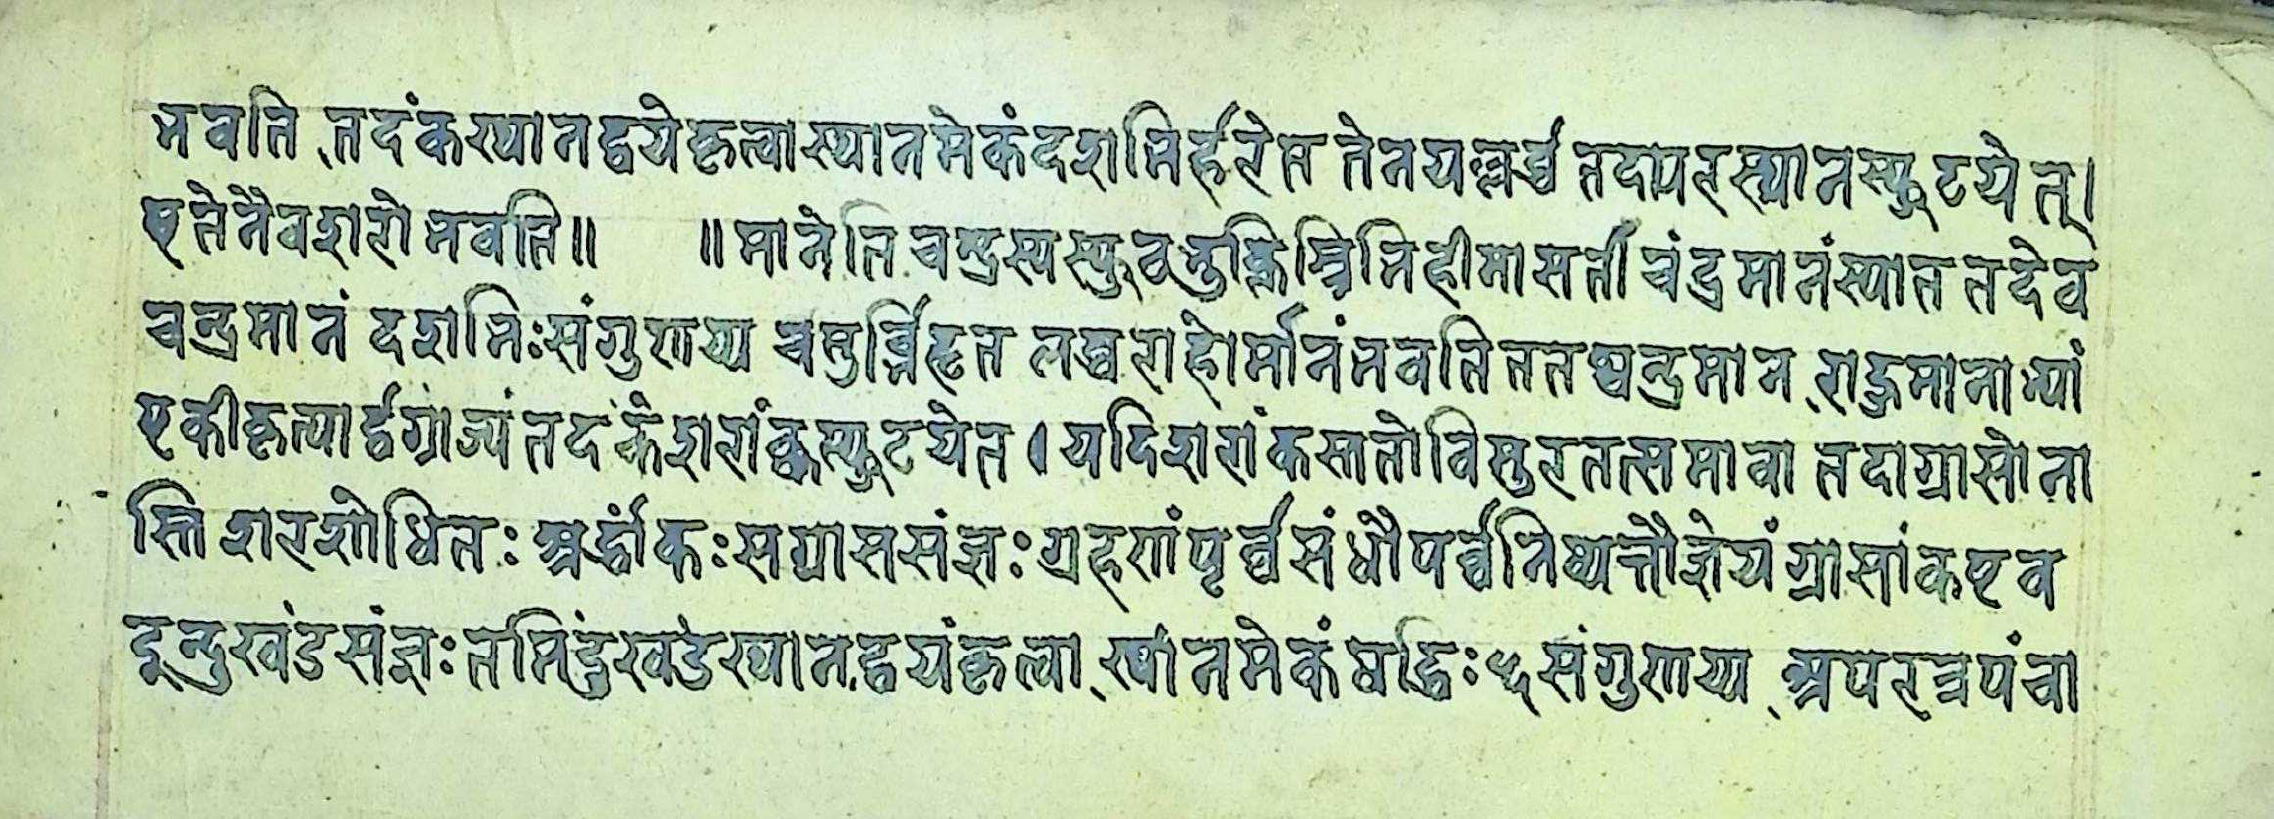 भवति तदंकस्थानद्वयेकृत्वास्थानमेकंदशभिर्हरेत तेनयल्लब्धं तदापरस्थानस्फुटयेत्।
एतेनैवशरोभवति॥ ॥मानेति चन्द्रस्यस्फुटभुक्तिस्त्रिभिर्हीमासर्ती चंद्रमानंस्यात तदेव
चन्द्रमानं दशभिःसंगुण्य चतुर्भिहृत लब्धराहोर्मानंभवतिततश्चन्द्रमान राहुमानाभ्यां
एकीकृत्यार्द्धग्राज्यं तदंकंशरांकस्फुटयेत। यदिशरांकस्ततोविस्तुरतत्समावा तदाग्रासोना
स्तिशरशोधितः अर्द्धांकःसग्राससंज्ञःग्रहणंपूर्व्वसंधौपर्व्वनिष्पत्तौज्ञेयंग्रासांकएव
इन्दुखंडसंज्ञःतमिंदुखंडस्थानद्वयंकृत्वा स्थानमेकंषड्भिः६संगुण्य अपरत्रपंचा